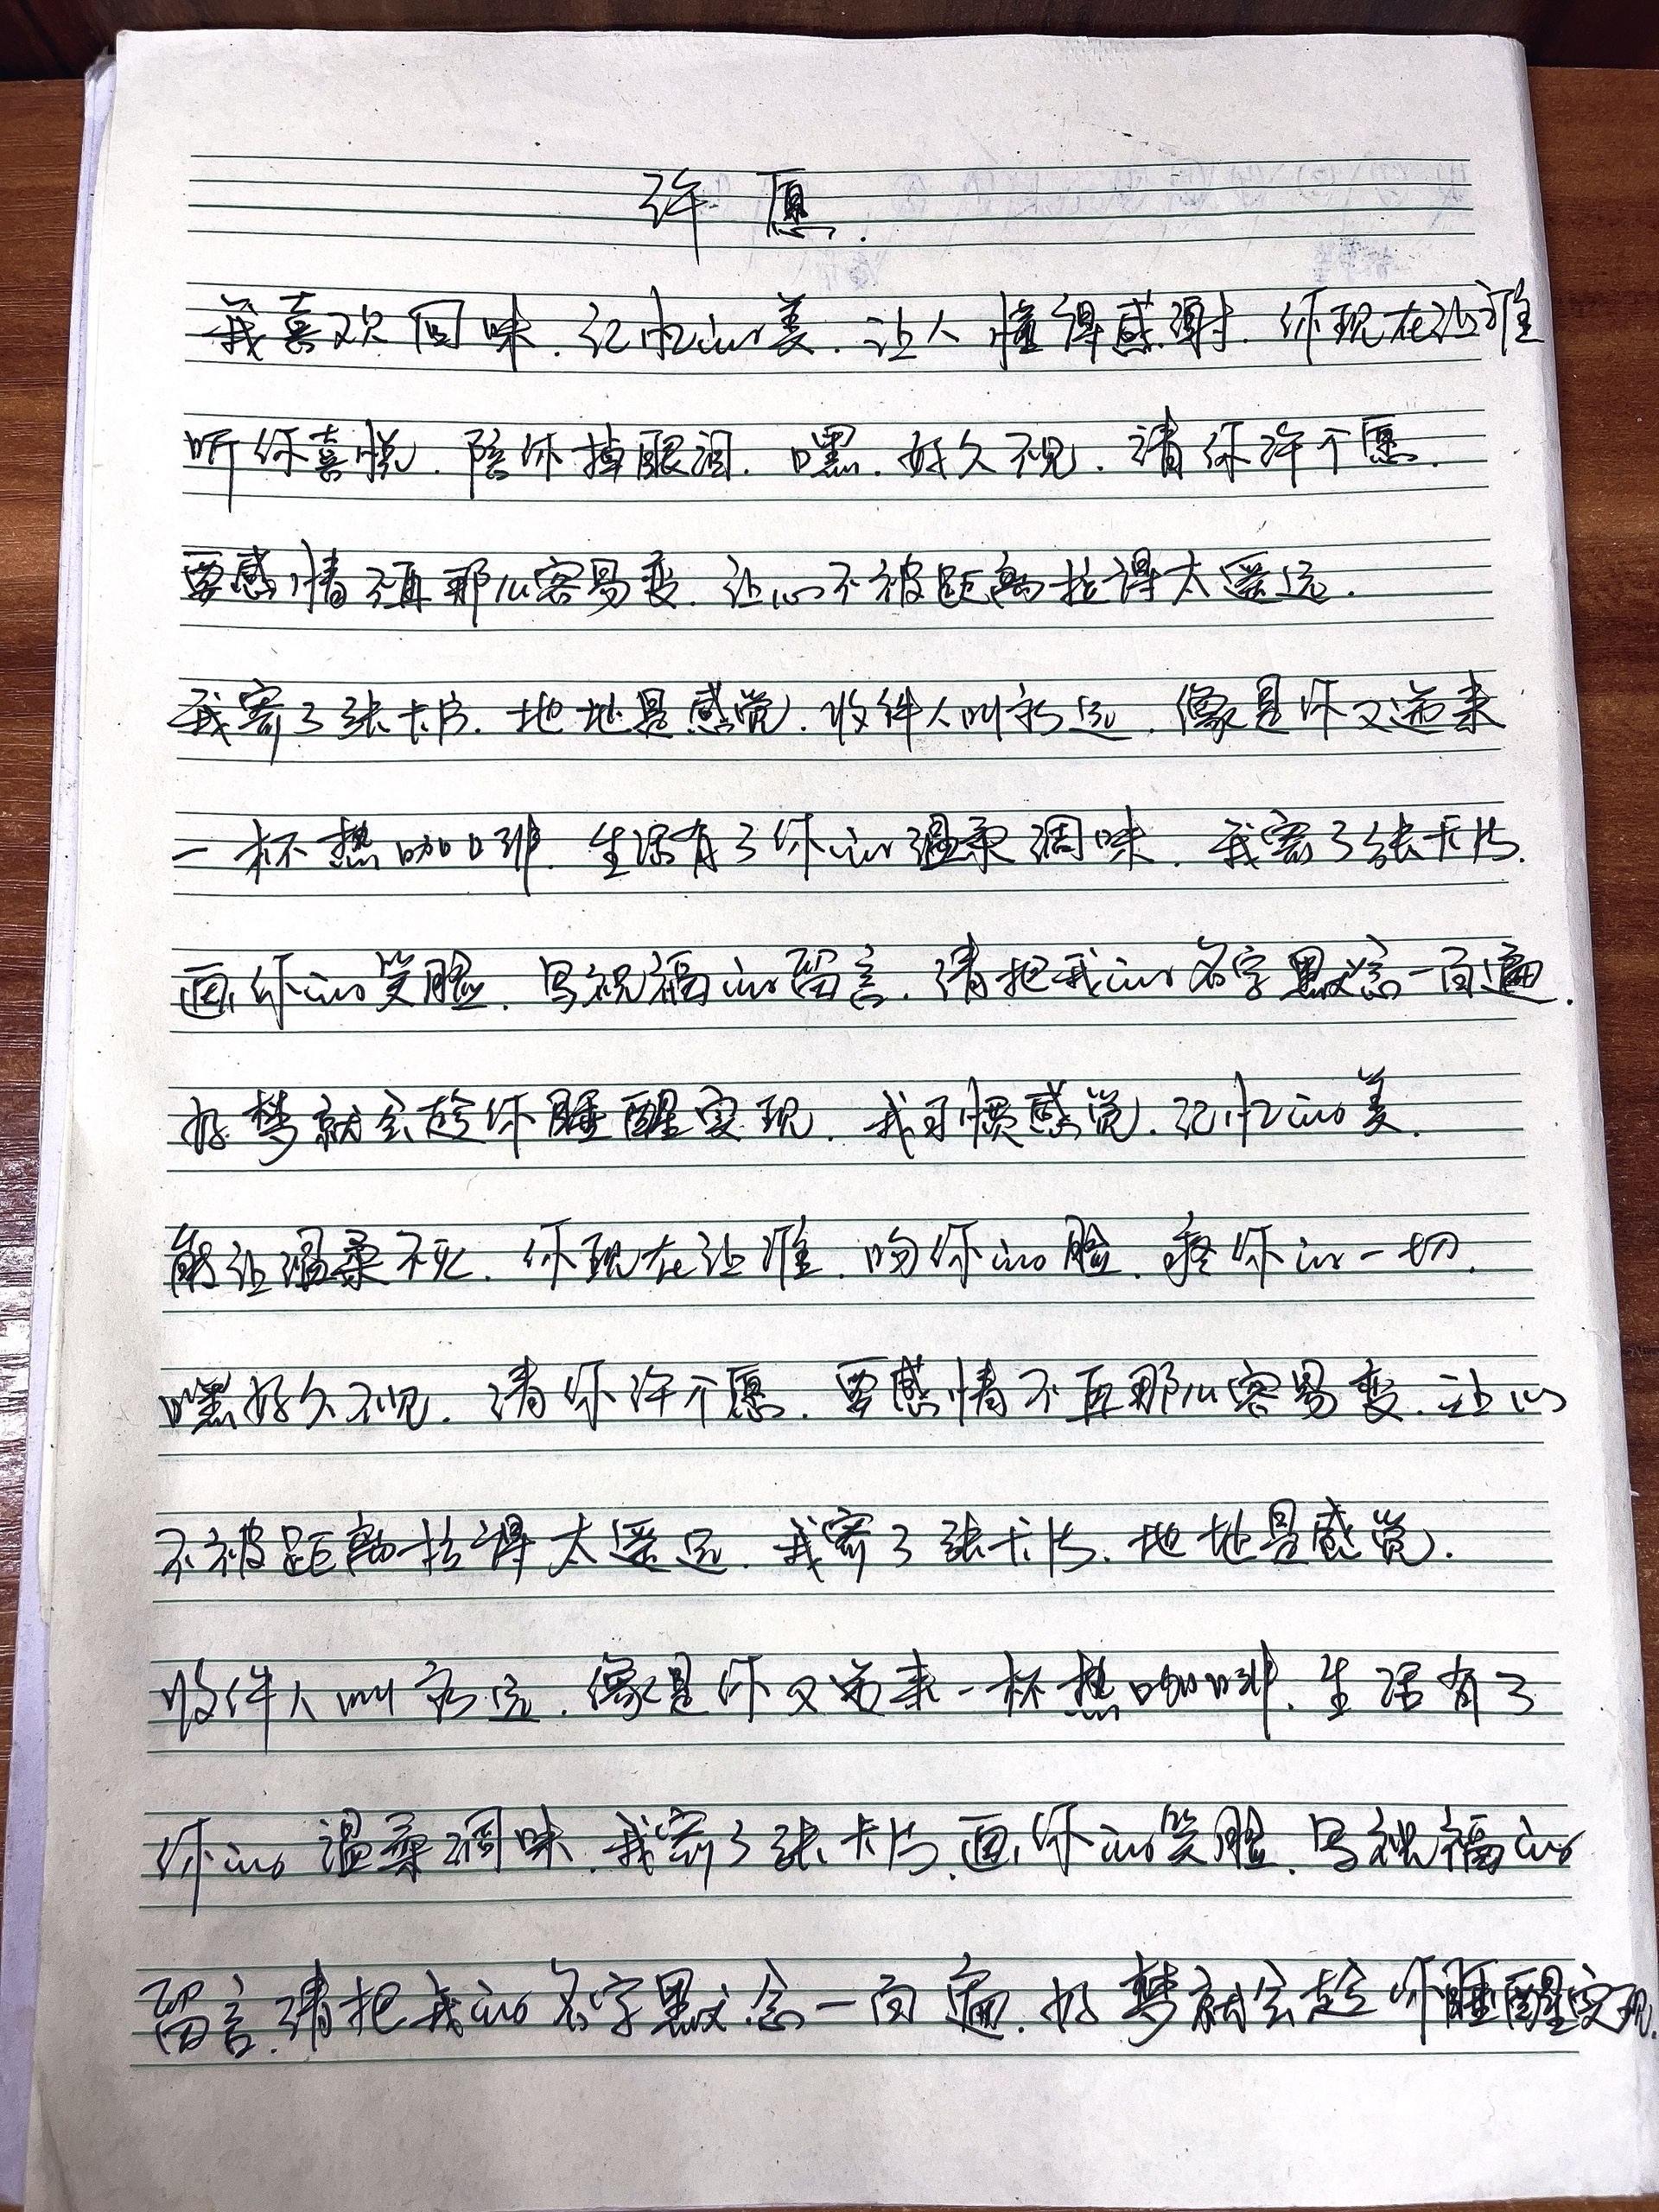 许愿.
我喜欢回味.记忆的美.让人懂得感谢.你现在让谁
听你喜悦.陪你掉眼泪.嘿.好久不见.请你许个愿.
要感情不再那么容易变.让心不被距离拉得太遥远.
我寄了张卡片.地址是感觉.收件人叫永远.像是你又递来
一杯热咖啡.生活有了你的温柔调味.我寄了张卡片.
画你的笑脸.写祝福的留言.请把我的名字默念一百遍.
好梦就会趁你睡醒实现.我习惯感觉.记忆的美.
能让温柔不死.你现在让谁.吻你的脸.疼你的一切.
嘿好久不见.请你许个愿.要感情不再那么容易变.让心
不被距离拉得太遥远.我寄了张卡片.地址是感觉.
收件人叫永远.像是你又递来一杯热咖啡.生活有了
你的温柔调味.我寄了张卡片.画你的笑脸.写祝福的
留言.请把我的名字默念一百遍.好梦就会趁你睡醒实现.